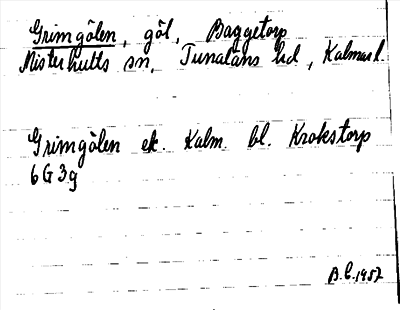 Grimgölen, göl, Baggetorp
Misterhults sn, Tunaläns hd, Kalmar l.
Grimgölen ek. Kalm. bl. Krokstorp
6G3g
B.L. 1957